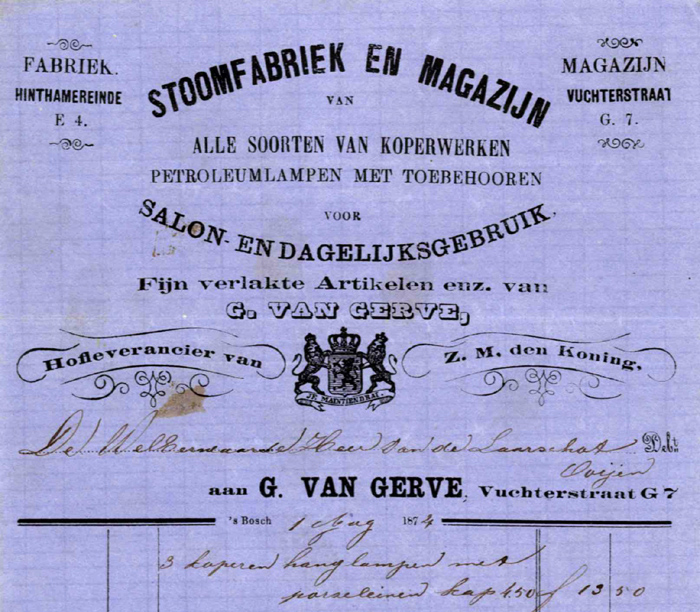 FABRIEK.
HINTHAMEREINDE
E 4.
STOOMFABRIEK EN MAGAZIJN
MAGAZIJN
VUCHTERSTRAAT
G. 7.
VAN
ALLE SOORTEN VAN KOPERWERKEN
PETROLEUMLAMPEN MET TOEBEHOOREN
VOOR
SALON- EN DAGELIJKSGEBRUIK.
Fijn verlakte Artikelen enz. van
G. VAN GERVE,
Hofleverancier van
Z. M. den Koning.
JE MAINTIENDRAI.
De Weledelwaarde Heer van de Laarschot Debt.
Ooijen
aan G. VAN GERVE, Vuchterstraat G 7
's Bosch 1 Aug 1874
3 koperen hang lampen met
porseleinen kap 4.50 f 13 50